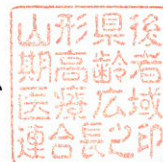 山形県後
期高齢者
医療広域
連合長之印